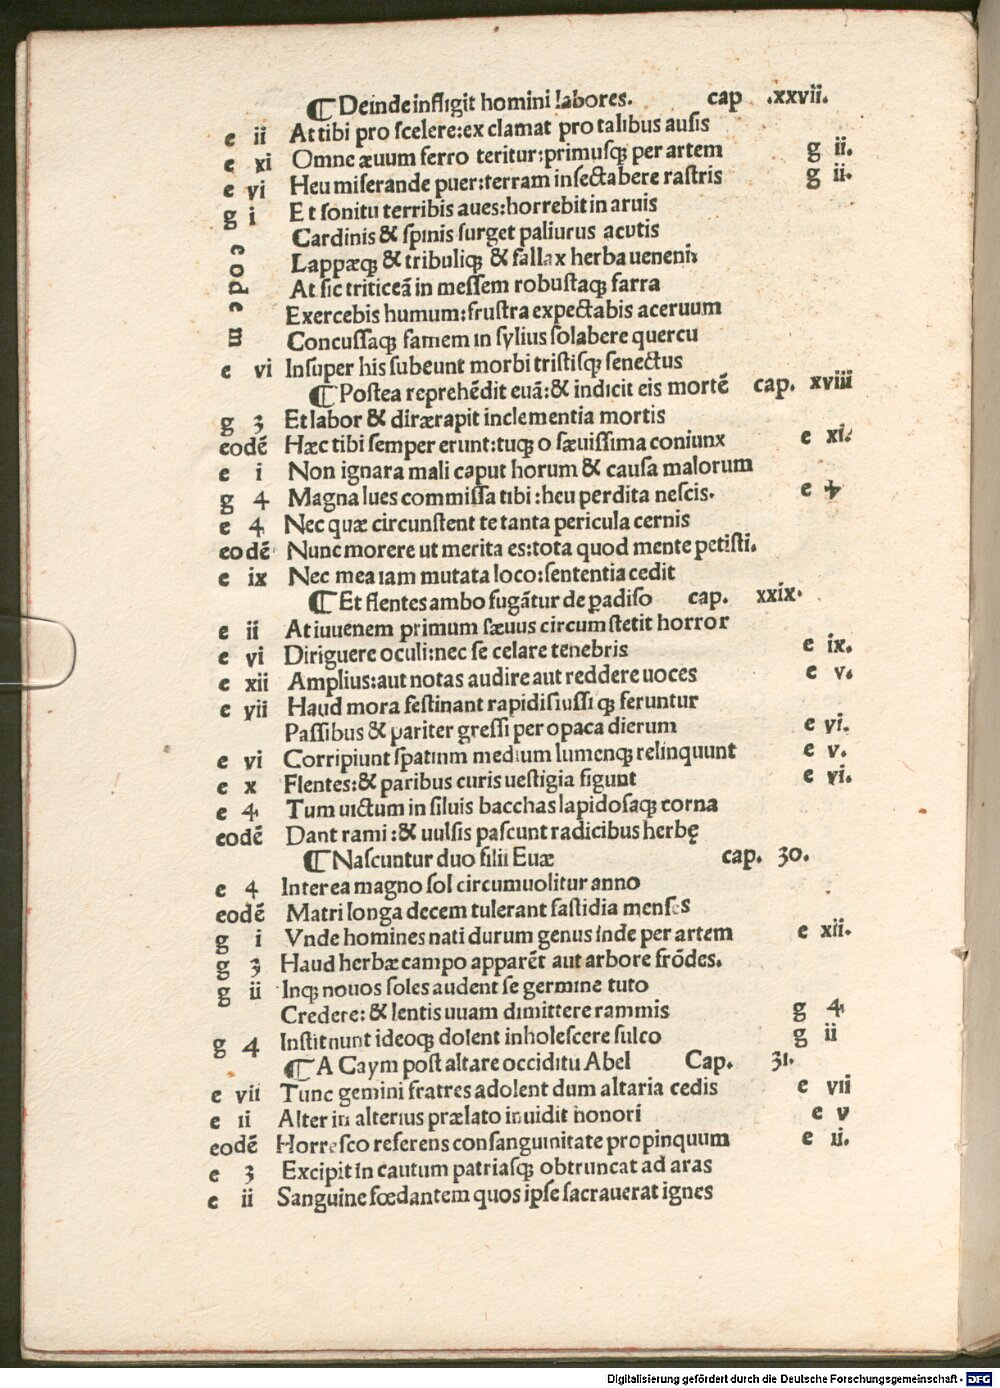 ¶ Deinde infligit homini labores. cap .xxvii.
e ii At tibi pro scelere:exclamat pro talibus ausis
e xi Omne æuum ferro teritur:primusq; per artem g ii.
e vi Heu miserande puer:terram insectabere rastris g ii.
g i Et sonitu terribis aues:horrebit in aruis
Cardinis & spinis surget paliurus acutis
Lappæq; & tribuliq; & fallax herba ueneni
At sic triticeā in messem robustaq; farra
Exercebis humum:frustra expectabis aceruum
Concussaq; famem in sylius solabere quercu
eodem
e vi Insuper his subeunt morbi tristisq; senectus
¶ Postea reprehēdit euā:& indicit eis mortē cap. xviii
g 3 Et labor & diræ rapit inclementia mortis
eodē Hæc tibi semper erunt:tuq; o sæuissima coniunx e xi.
e i Non ignara mali caput horum & causa malorum
g 4 Magna lues commissa tibi:heu perdita nescis. e 4
e 4 Nec quæ circunstent te tanta pericula cernis
eodē Nunc morere ut merita es:tota quod mente petisti.
e ix Nec mea iam mutata loco:sententia cedit
¶ Et flentes ambo fugātur de padiso cap. xxix.
e ii At iuuenem primum sæuus circumstetit horror
e vi Diriguere oculi:nec se celare tenebris e ix.
e xii Amplius:aut notas audire aut reddere uoces e v.
e vii Haud mora festinant rapidisiussi q; feruntur
Passibus & pariter gressi per opaca dierum e vi.
e vi Corripiunt spatinm medium lumenq; relinquunt e v.
e x Flentes:& paribus curis uestigia figunt e vi.
e 4 Tum uictum in siluis bacchas lapidosaq; corna
eodē Dant rami:& uulsis pascunt radicibus herbę
¶ Nascuntur duo filii Euæ cap. 30.
e 4 Interea magno sol circumuolitur anno
eodē Matri longa decem tulerant fastidia menses
g i Vnde homines nati durum genus inde per artem e xii.
g 3 Haud herbæ campo apparēt aut arbore frōdes.
g ii Inq; nouos soles audent se germine tuto
Credere: & lentis uuam dimittere rammis g 4
g 4 Institnunt ideoq; dolent inholescere sulco g ii
¶ A Caym post altare occiditu Abel Cap. 31.
e vii Tunc gemini fratres adolent dum altaria cedis e vii
e ii Alter in alterius prælato inuidit honori e v
eodē Horresco referens consanguinitate propinquum e ii.
e 3 Excipit in cautum patriasq; obtruncat ad aras
e ii Sanguine fœdantem quos ipse sacrauerat ignes
Digitalisierung gefördert durch die Deutsche Forschungsgemeinschaft - DFG